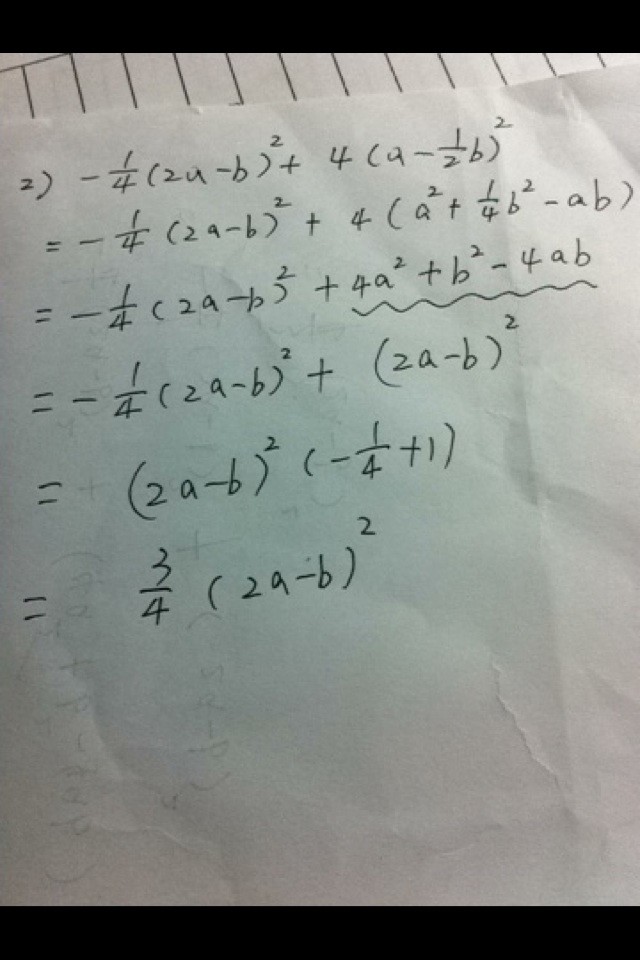 2) -1/4(2a-b)²+ 4(a-1/2b)²
=-1/4(2a-b)²+4(a²+1/4b²-ab)
=-1/4(2a-b)²+4a²+b²-4ab
=-1/4(2a-b)²+(2a-b)²
=(2a-b)²(-1/4+1)
=3/4(2a-b)²